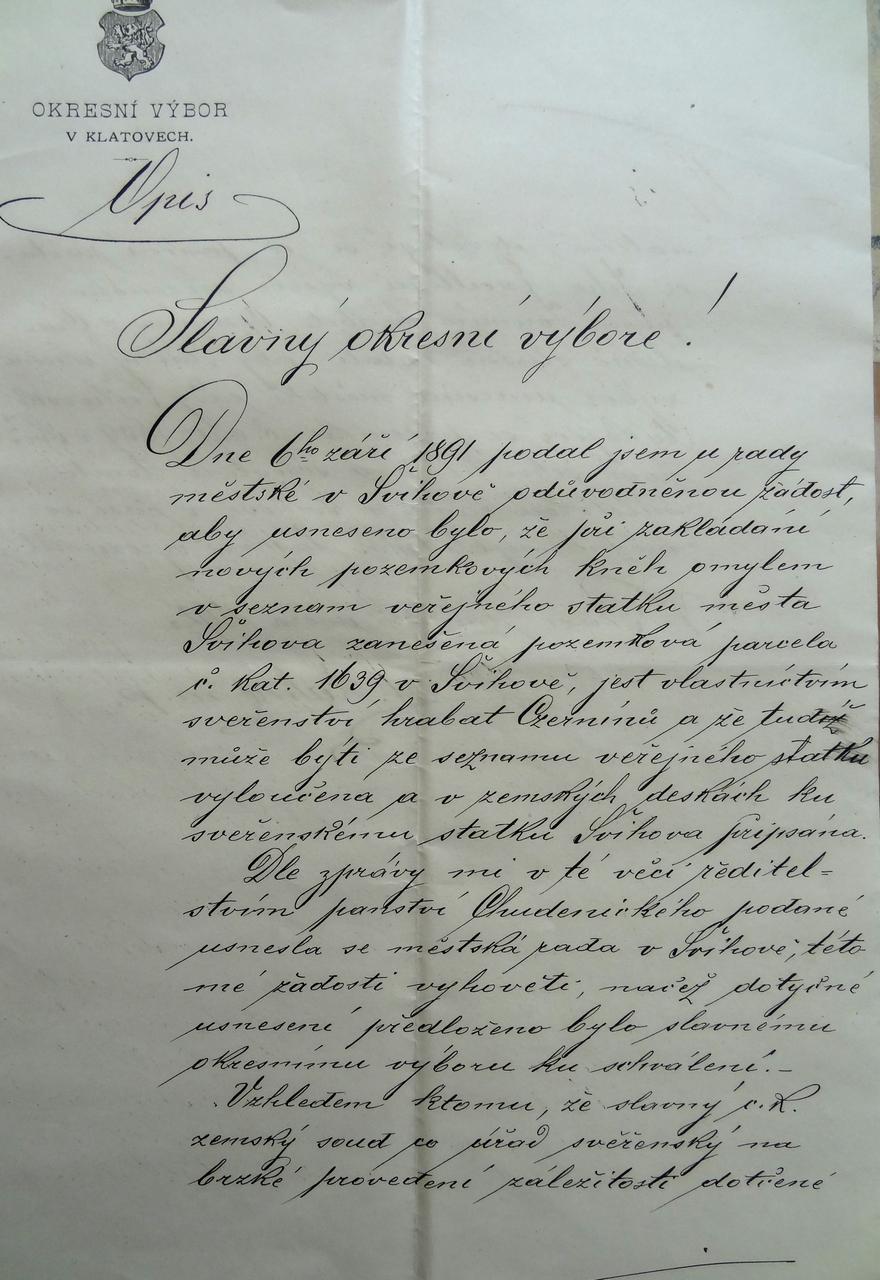 OKRESNÍ VÝBOR
V KLATOVECH.
Opis
Slavný okresní výbore!
Dne 6ho září 1891 podal jsem u rady
městské v Švihově odůvodněnou žádost,
aby usneseno bylo, že při zakládání
nových pozemkových kněh omylem
v seznam veřejného statku města
Švihova zanešená pozemková parcela
č. kat. 1639 v Švihově, jest vlastnictvím
svěřenství hrabat Czernínů a že tudíž
může býti ze seznamu veřejného statku
vyloučena a v zemských deskách ku
svěřenskému statku Švihova připsána.
Dle zprávy mi v té věci ředitel=
stvím panství Chudenického podané
usnesla se městská rada v Švihově, této
mé žádosti vyhověti, načež dotyčné
usnesení předloženo bylo slavnému
okresnímu výboru ku schválení.-
Vzhledem ktomu, že slavný c.k.
zemský soud co úřad svěřenský na
brzké provedení záležitosti dotčené